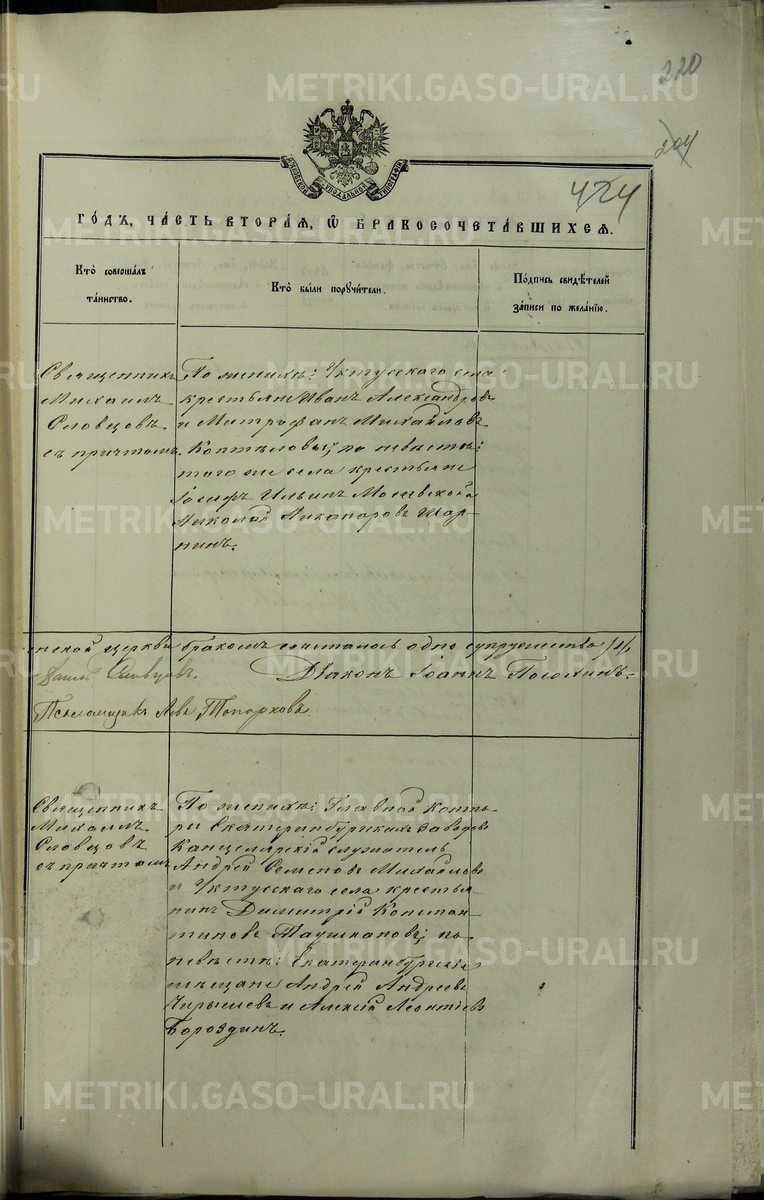 220
204
424
МОСКОВСКОЙ СѴНОДАЛЬНОЙ ТИПОГРАФІИ
ГО́ДЪ, ЧА́СТЬ ВТОРА́Я, Ѿ БРАКОСОЧЕТА́ВШИХСЯ.
Кто̀ соверша́лъ
та́инство.
Кто̀ бы́ли поручи́тели.
По́дпись свидѣ́телей
за́писи по жела́нію.
Священникъ
Михаилъ
Словцовъ
съ причтомъ.
По женихѣ: Уктусскаго села
крестьяне Иванъ Александровъ
и Митрофанъ Михайловъ
Коптѣловы; по невѣстѣ:
того же села крестьяне
Іосифъ Ильинъ
Николай Никаноровъ Шар-
нинъ.
нской церкви бракомъ сочеталось одно супружество /1/
Словцовъ. Діаконъ Іоаннъ
Псаломщикъ Левъ Топорковъ.
Священникъ
Михаилъ
Словцовъ
съ причтомъ
По женихѣ: Главной Конто-
ры Екатеринбургскихъ Заводовъ
Канцелярскій служитель
Андрей Семеновъ Михайловъ
и Уктусскаго села крестья-
нинъ Димитрій Констан-
тиновъ Таушкановъ; по
невѣстѣ: Екатеринбургскіе
мѣщане Андрей Андреевъ
Чирышевъ и Алексѣй Леонтіевъ
Бороздинъ.
METRIKI.GASO-URAL.RU